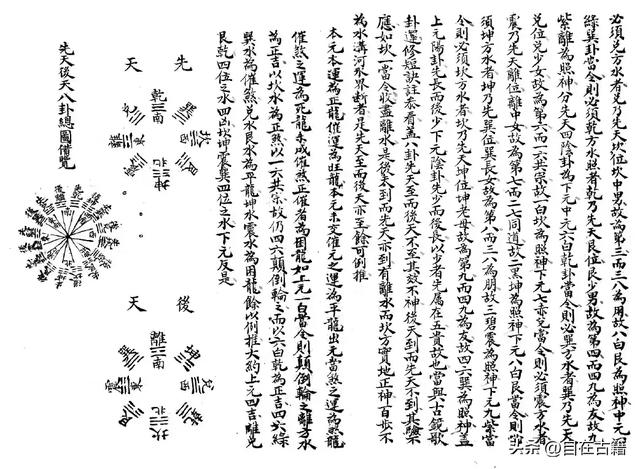 必須兌方水者兌乃先天坎位坎中男故為第三而三八為朋故八白艮為照神中元四
綠巽卦當令則必須乾方水照者乾乃先天艮位艮少男故為第四而四九為友故九
紫離為照神分先天四陰卦為下元中元六白乾卦當令則必巽方水者巽乃先天
兌位兌少女故為第六而一六共宗故一白坎為照神下元七赤兌當令則必須震方水者
震乃先天離位離中女故為第七而二七同道故二黑坤為照神下元八白艮當令則必
須坤方水者坤乃先天巽位巽長女故為第八而三八為朋故三碧震為照神下元九紫當
令則必須坎方水者坎乃先天坤位坤老母故為第九而四九為友故四六巽為照神蓋
上元陽卦先長而後少下元陰卦先少而後長以少者先屬在五貴故也當與古鏡歌
卦運修短訣註參看蓋八卦先天至而後天不至其效不神後天到而先天不到其驗不
應如坎一當令收盡離水是後天到而先天亦到有離水而坎方實地正神百步不
為水溝河水界斷者是先天至而後天亦至餘可倒推
本元本運為正龍催運為旺龍本元未交催元之運為平龍出元當煞之運為煞龍
催煞之運為死龍未成催煞正催者為困龍如上元一白當令則顛倒輪之離方水
為正吉以坎水為正煞以一六共宗故仍四六顛倒輪之而以六白乾為正吉四六綠
巽水為催煞兌水艮水為平龍坤水震水為困龍餘以例推大約上元四吉離兌
艮乾四位之水四凶坎坤震巽四位之水下元反是
先天後天八卦總圖備覽
先天
乾 南
兌
離 東
震
坤 北
艮
坎 西
巽
後天
離 南
巽
震 東
艮
坎 北
乾
兌 西
坤
头条 @自在古籍